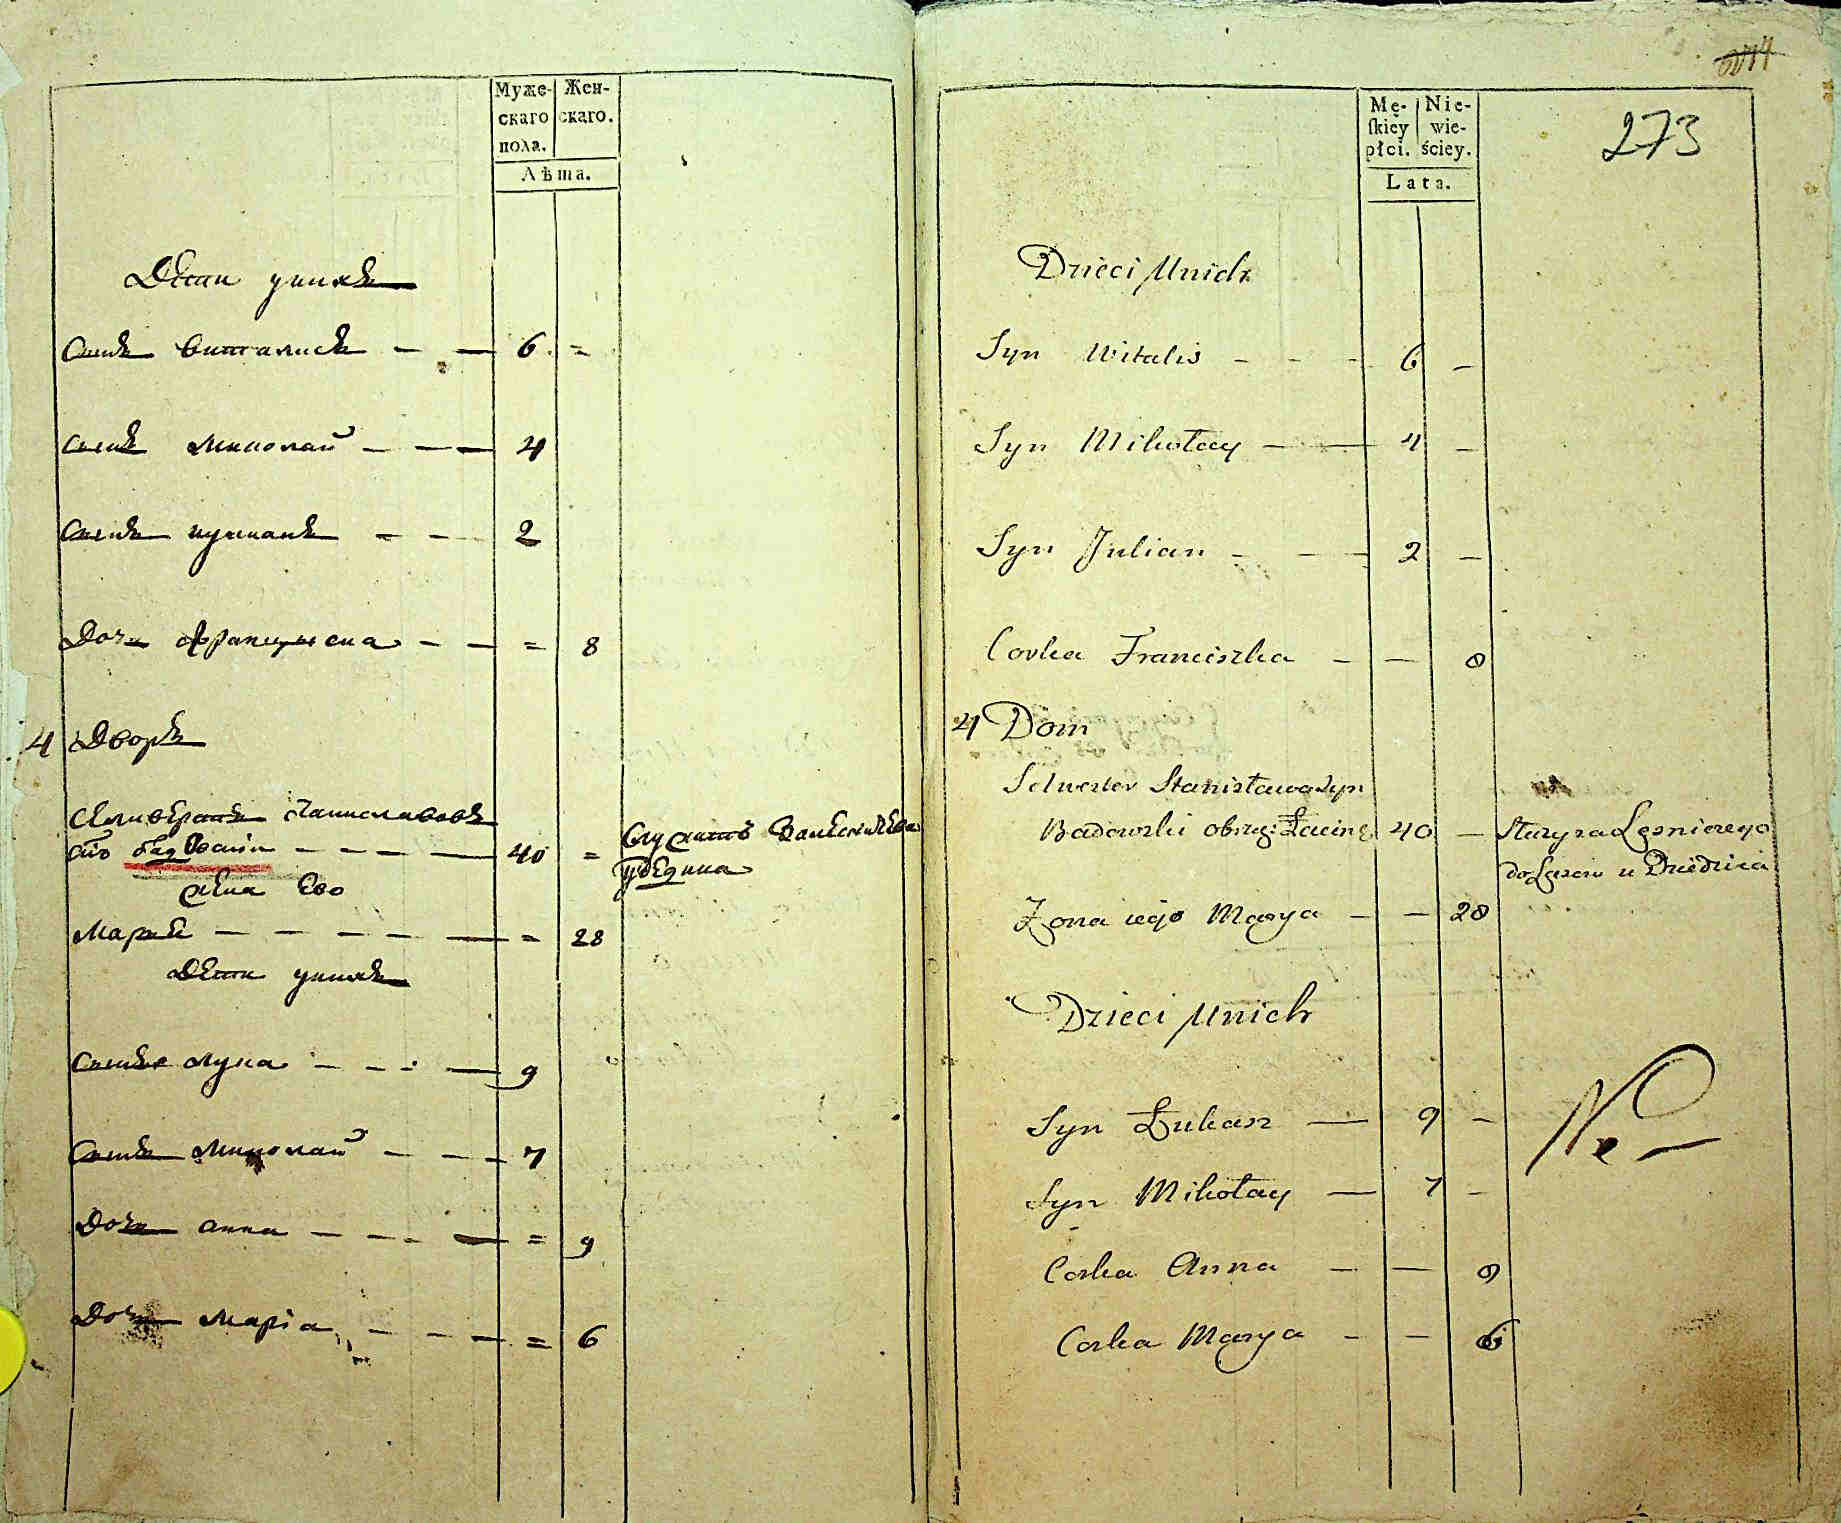 Муже-
скаго
пола.
Жен-
скаго.
Лѣта.
Дѣти унихъ
Сынъ Виталисъ — — 6 =
Сынъ Николай — — — 4
Сынъ Иулианъ — — 2
Дочь Францышка — — = 8
4 Дворъ
Селивестръ Станиславовъ
сынъ Бадовскій — — — — 40 =
Служитъ
уѣздина
Жена Ево
Марья — — — — — = 28
Дѣти унихъ
Сынъ Лука — — — 9
Сынъ Николай — — — 7
Дочь Анна — — — = 9
Дочь Маріа — — — = 6
274
273
Mę-
skiéy
płci.
Nie-
wie-
ściey.
Lata.
Dzieci Unich
Syn Witalis — — — 6 —
Syn Mikołay — — 4 —
Syn Julian — — 2 —
Corka Franciszka — — 8
4 Dom
Selwester Stanisława Syn
Badowski obrzą: Łacinś 40 — Służy za Leśniczego
do Lasow u Dziedzica
Zona iego Marya — — 28
Dzieci Unich
Syn Łukasz — 9 —
Syn Mikołay — 7 —
Corka Anna — — 9
Corka Marya — — 6
Ne —